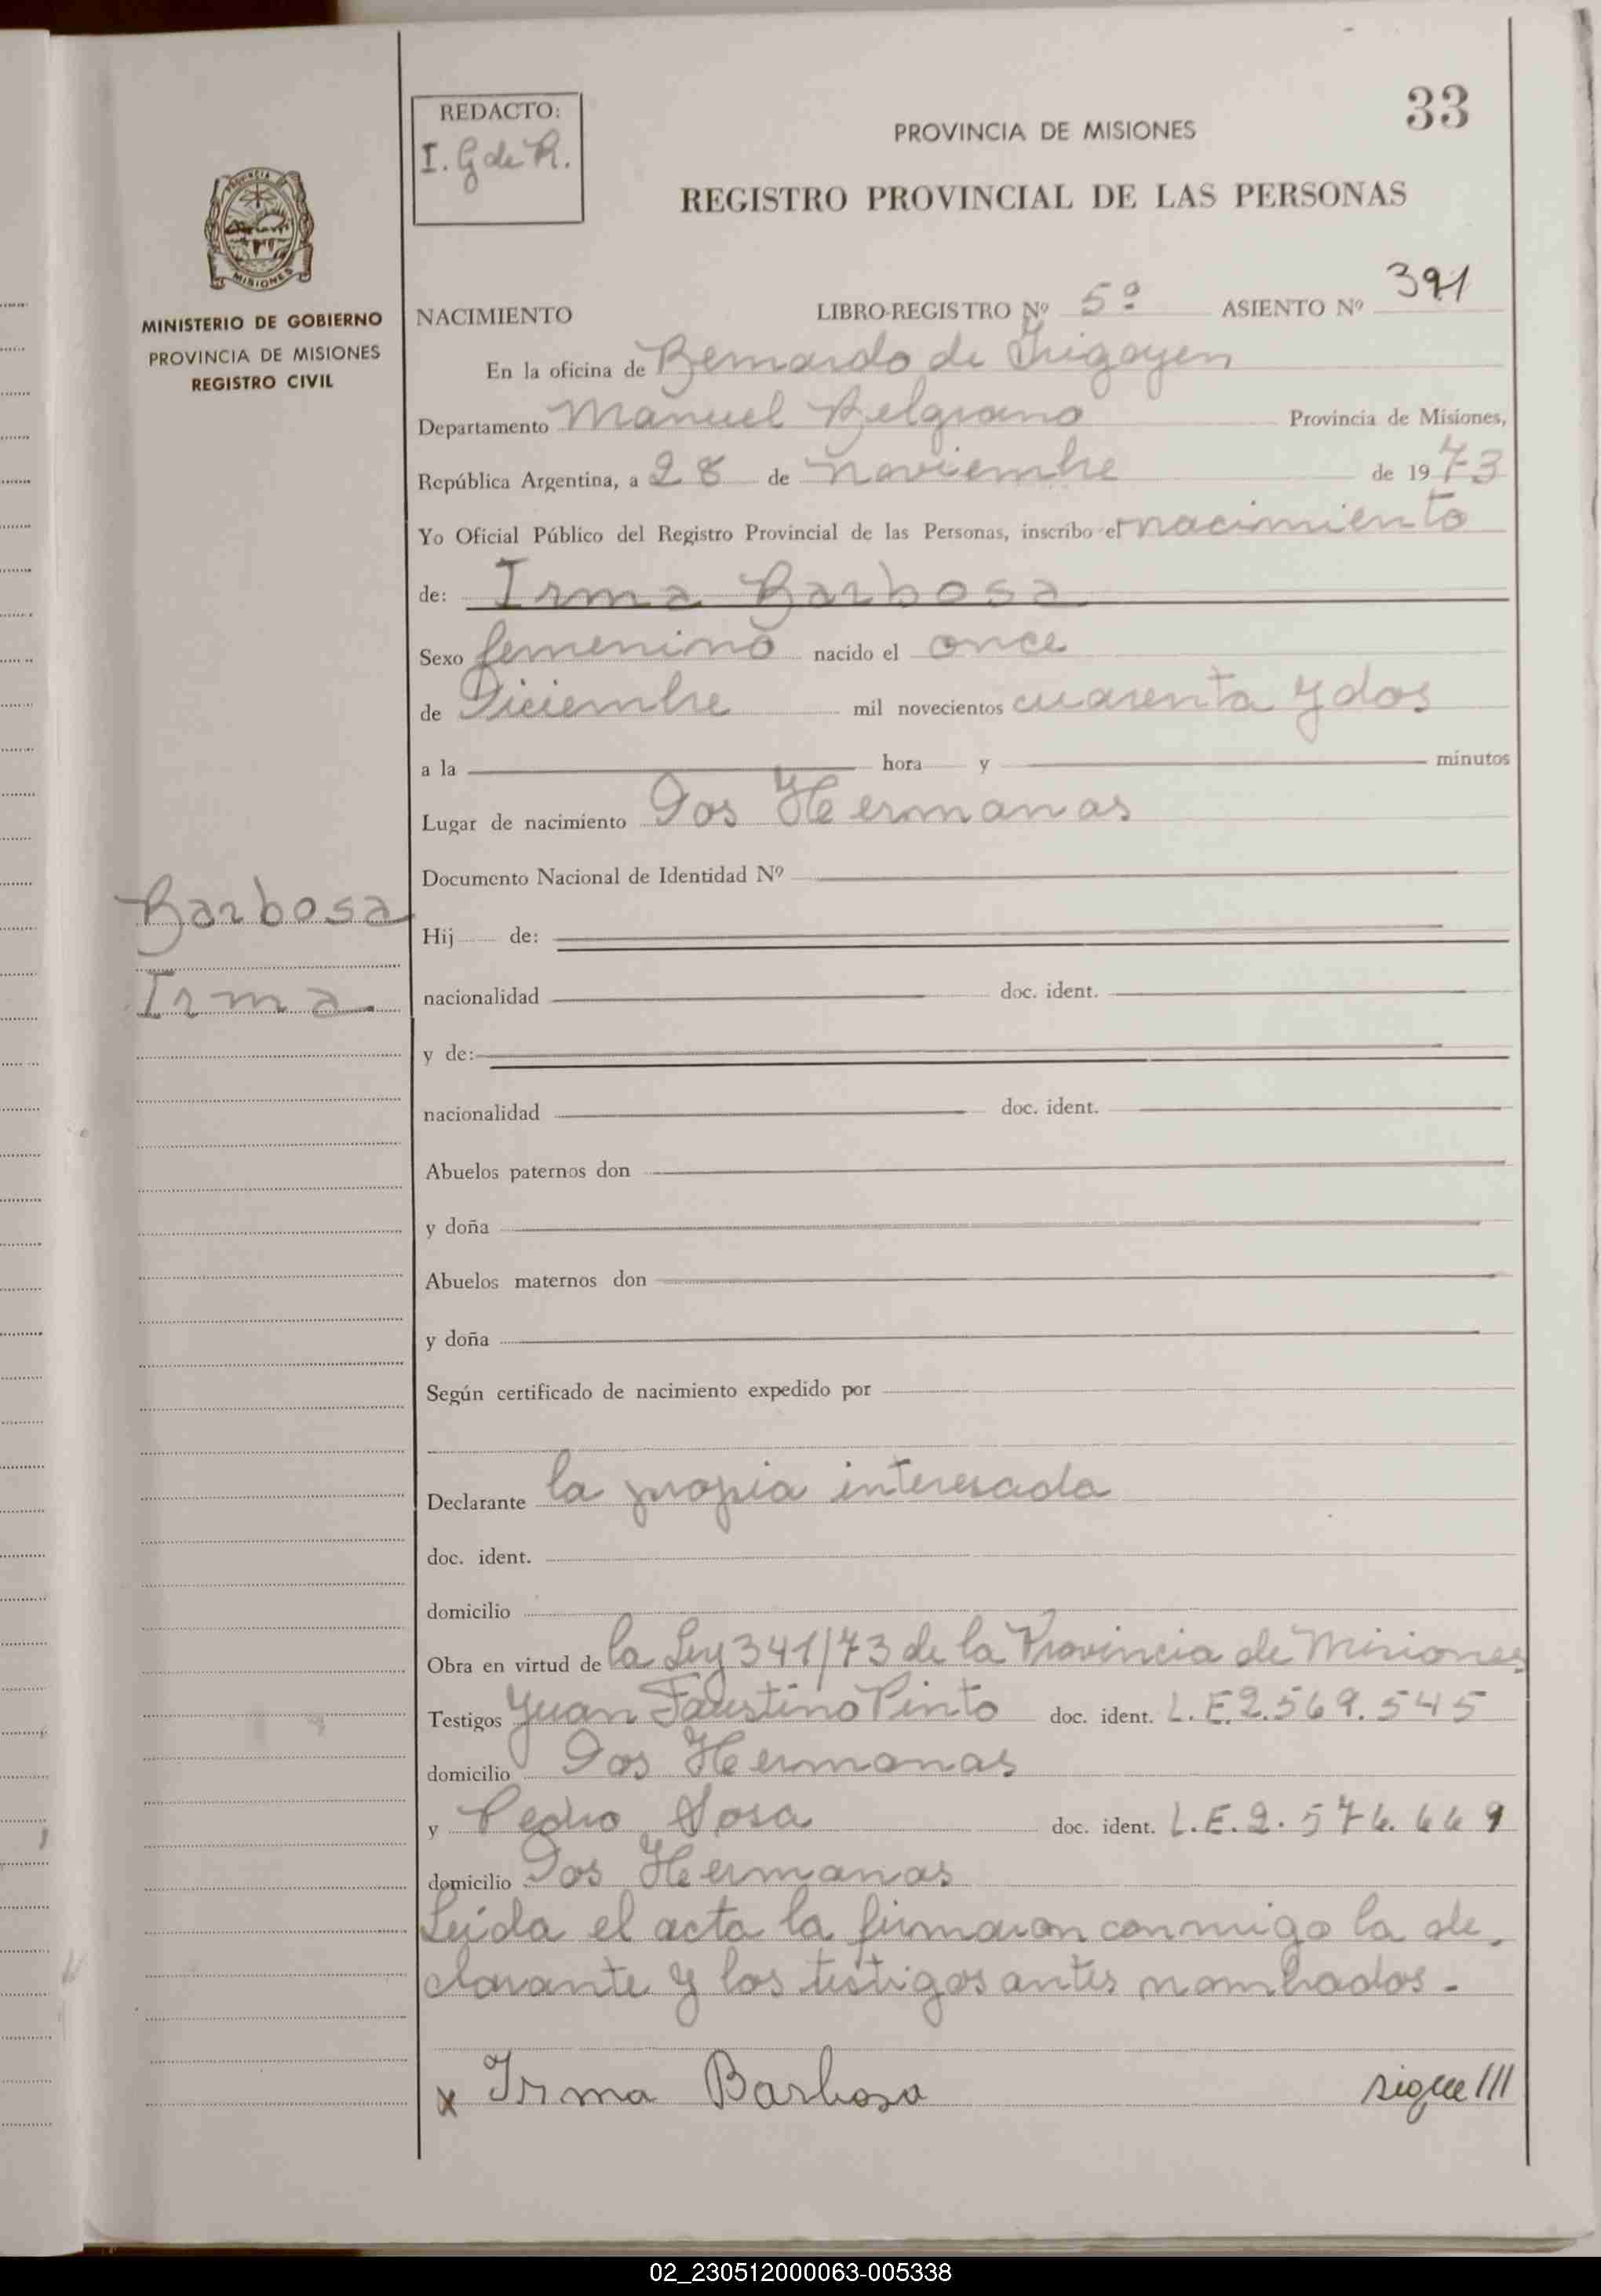 REDACTO:
I. G de R.
33
PROVINCIA DE MISIONES
REGISTRO PROVINCIAL DE LAS PERSONAS
PROVINCIA DE
MISIONES
MINISTERIO DE GOBIERNO
PROVINCIA DE MISIONES
REGISTRO CIVIL
NACIMIENTO LIBRO-REGISTRO Nº 5º ASIENTO Nº 391
En la oficina de Bernardo de Irigoyen
Departamento Manuel Belgrano Provincia de Misiones,
República Argentina, a 28 de noviembre de 1973
Yo Oficial Público del Registro Provincial de las Personas, inscribo el nacimiento
de: Irma Barbosa
Sexo femenino nacido el once
de Diciembre mil novecientos cuarenta y dos
a la hora y minutos
Lugar de nacimiento Dos Hermanas
Documento Nacional de Identidad Nº
Barbosa
Irma
Hij de:
nacionalidad doc. ident.
y de:
nacionalidad doc. ident.
Abuelos paternos don
y doña
Abuelos maternos don
y doña
Según certificado de nacimiento expedido por
Declarante la propia interesada
doc. ident.
domicilio
Obra en virtud de la Ley 341/73 de la Provincia de Misiones
Testigos Juan Faustino Pinto doc. ident. L.E.2.569.545
domicilio Dos Hermanas
y Pedro Sosa doc. ident. L.E.2.
domicilio Dos Hermanas
Leída el acta la firmaron conmigo la de-
clarante y los testigos antes nombrados.-
x Irma Barbosa sigue///
02_230512000063-005338